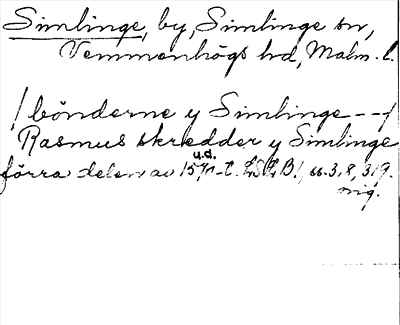 Simlinge, by, Simlinge sn,
Vemmenhögs hd, Malm. l.
/ bönderne y Simlinge - - /
Rasmus skredder y Simlinge
u.d.
förra delen av 1570-t. B!, ss. 3, 8, 319.
mig.